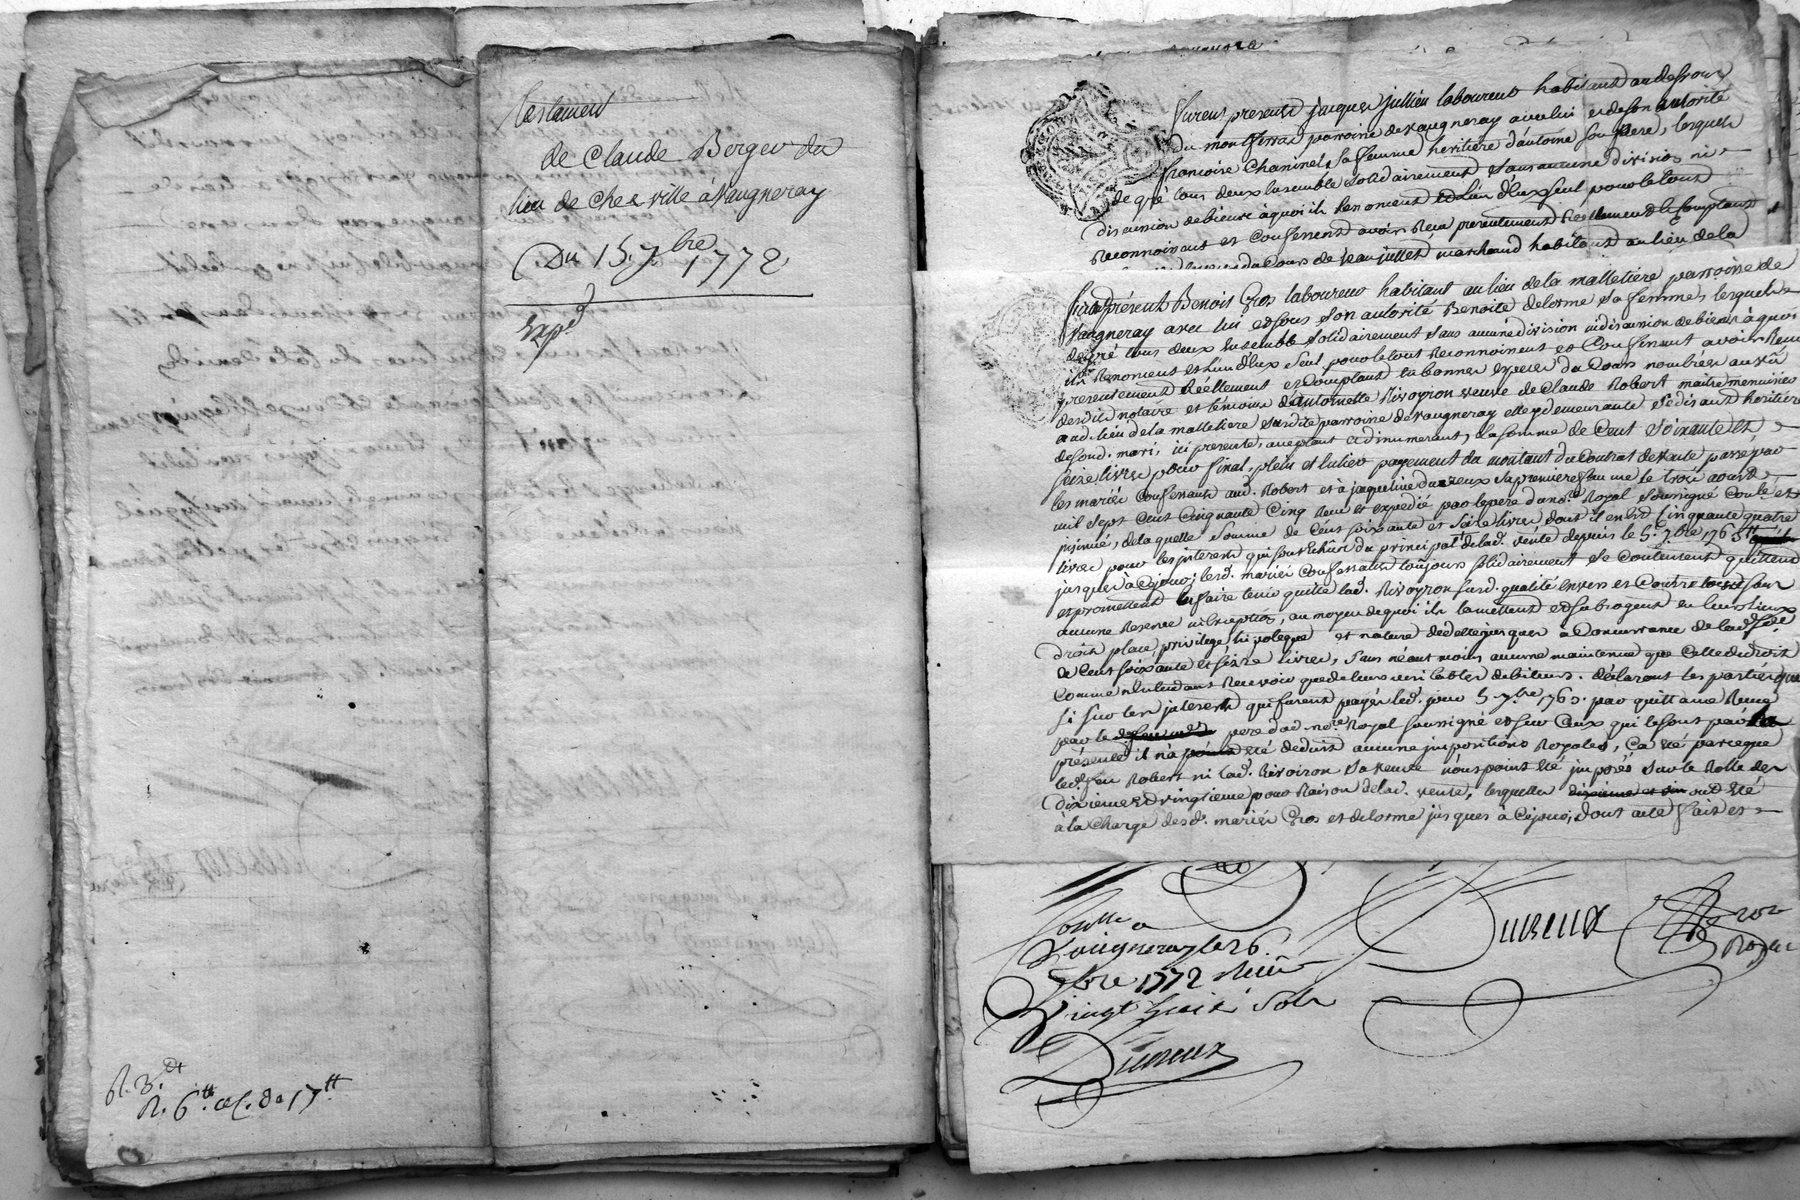 Testament
de Claude Berger du
lieu de Chez ville à Vaugneray
Du 15 7bre 1772
Expd
R. 6tt
furent presents jacques jullien laboureur habitant au dessous
du montferrat parroisse de Vaugneray avec lui et de son autorité
françoise Chaninel sa femme heritière d'antoine son frere, lesquels
de gré tous deux ensemble solidairement sans aucune division ni
discusion de biens à quoi ils renoncent et l'un d'eux seul pour le tout
Reconnoissent et Confessent avoir Reçu presentement Reellement et Comptant
du Cours de jean jullien marchand habitant au lieu de la
furent présent Benoit Gros laboureur habitant au lieu de la malletière parroisse de
Vaugneray avec lui et sous son autorité Benoite delorme sa femme, lesquels
de gré tous deux ensemble solidairement sans aucune division ni discusion de biens à quoi
ils Renoncent et l'un d'eux seul pour le tout Reconnoissent et Confessent avoir Reçu
presentement Réellement et Comptant en bonnes especes du Cours nombrées au vû
desdits notaire et témoins d'antoinette Rivoyron veuve de Claude Robert maitre menuisier
aud. lieu de la malletière susdite parroisse de Vaugneray elle y demeurante se disant heritière
de sond. mari, ici presente, acceptant et dinumerant, la somme de Cent soixante et
seize livres pour final, plein et entier payement du montant du Contrat de vente passé par
les mariés Confessants aud. Robert et à jacqueline dureux sa premiere femme le trois aoust
mil sept Cent Cinquante Cinq Reçu et expedié par le pere du nore Royal soussigné Controlé et
jnsinué, de laquelle somme de Cent soixante et seize livres dont il en est Cinquante quatre
livres pour les jnterests qui sont échus du principal de lad. vente depuis le 5. 7bre 1763
jusques à Cejour; lesd. mariés Confessants toujours solidairement se Contentent quittent
et promettent faire tenir quitte lad. Rivoyron sусd. qualité envers et Contre tous sans
aucune Reserve ni Exception, au moyen de quoi ils la mettent et subrogent en leurs lieux
droits place privilege hipoteque et nature de dette jusques à Concurrance de lad. somme
de Cent soixante et seize livres, sans néant moins aucune maintenue que Celle de droit
Comme n'entendant Recevoir que de leurs veritables debiteurs. déclarant les parties que
si sur les jnterests qui furent payés led. jour 5 7bre 1763. par quittance Reçue
par le pere dud. nore Royal soussigné et sur Ceux qui le sont par la
présente il n'a été deduit aucune jmpositions Royales, Ca été parceque
led. feu Robert ni lad. Rivoiron sa veuve n'ont point été jmposés sur le Rolle des
dixieme et vingtieme pour Raison de lad. vente, lesquelles ont été
à la Charge desd. mariés Gros et delorme jusques à Cejour; dont acte fait et
Conlle a
Vaugneray le 26
7bre 1772 Reçu
Vingt huit sols
Dureux
Dureux
nore
Royal